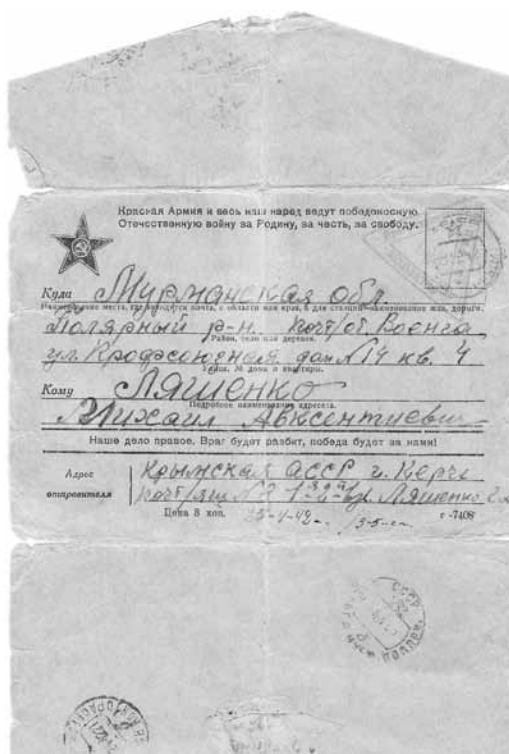 Красная Армия и весь наш народ ведут победоносную
Отечественную войну за Родину, за честь, за свободу.
Куда Мурманская обл.
Наименование места, где находится почта, с области или края, а для станции наименование жел. дороги.
Полярный р-н. почт/от. Ваенга
Район, село или деревня.
ул. Профсоюзная дом № 14 кв. 4
Улица, № дома и квартиры.
Кому Ляшенко
Подробное наименование адресата.
Михаил Авксентиевич
Наше дело правое. Враг будет разбит, победа будет за нами!
Адрес отправителя
Крымская АССР г. Керчь
почт/ящ № Ляшенко
Цена 8 коп.
г-7408
СССР